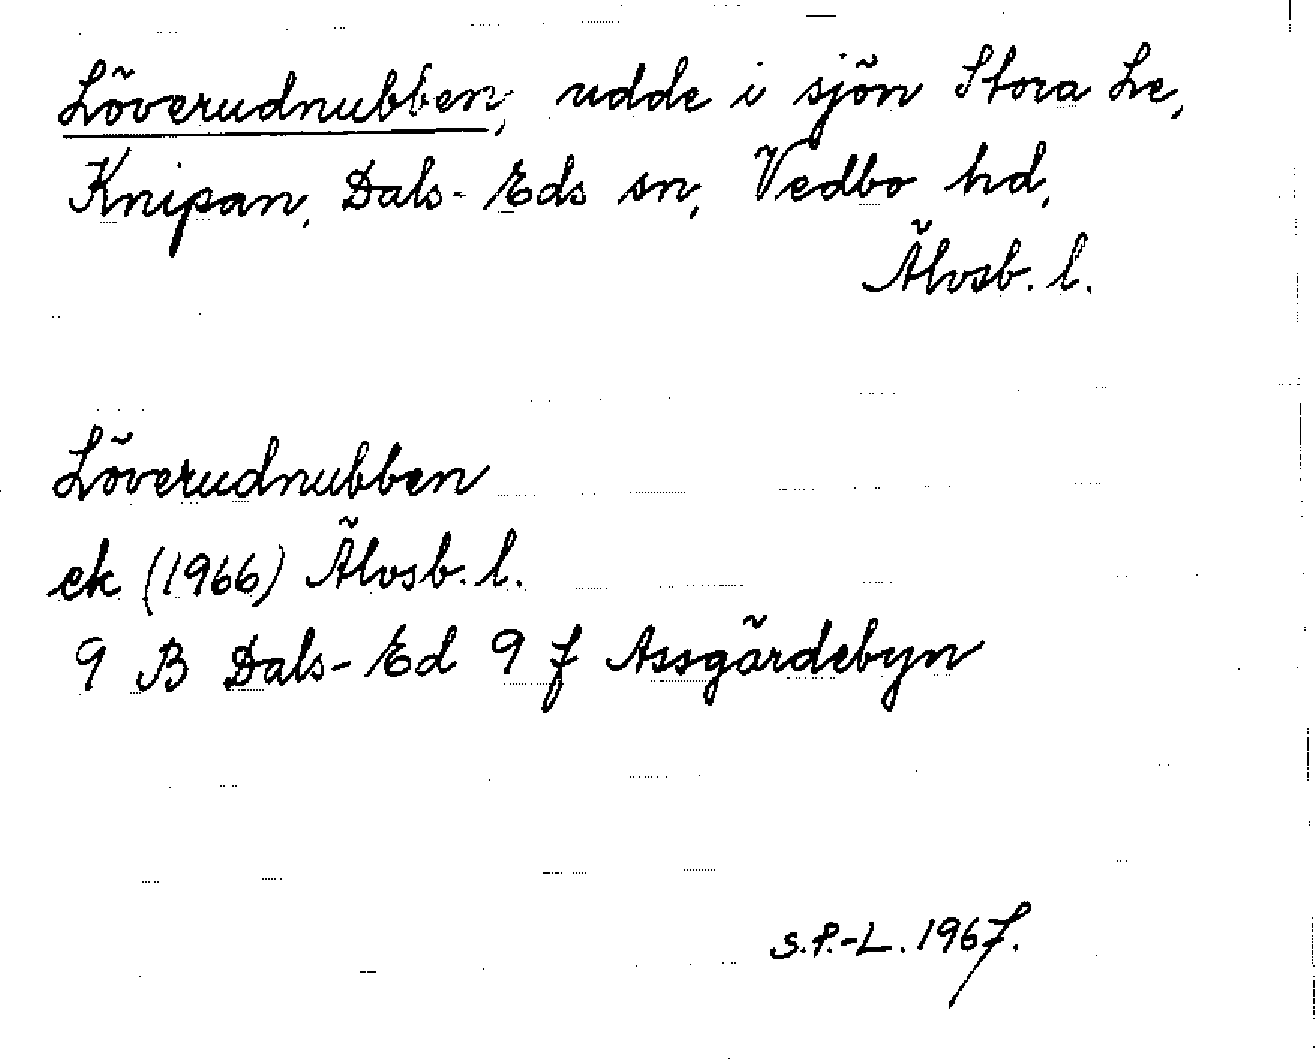 Löverudnubben, udde i sjön Stora Le,
Knipan, Dals-Eds sn, Vedbo hd,
Älvsb. l.
Löverudnubben
ek (1966) Älvsb. l.
9 B Dals-Ed 9 f Assgärdebyn
S.P.-L. 1967.